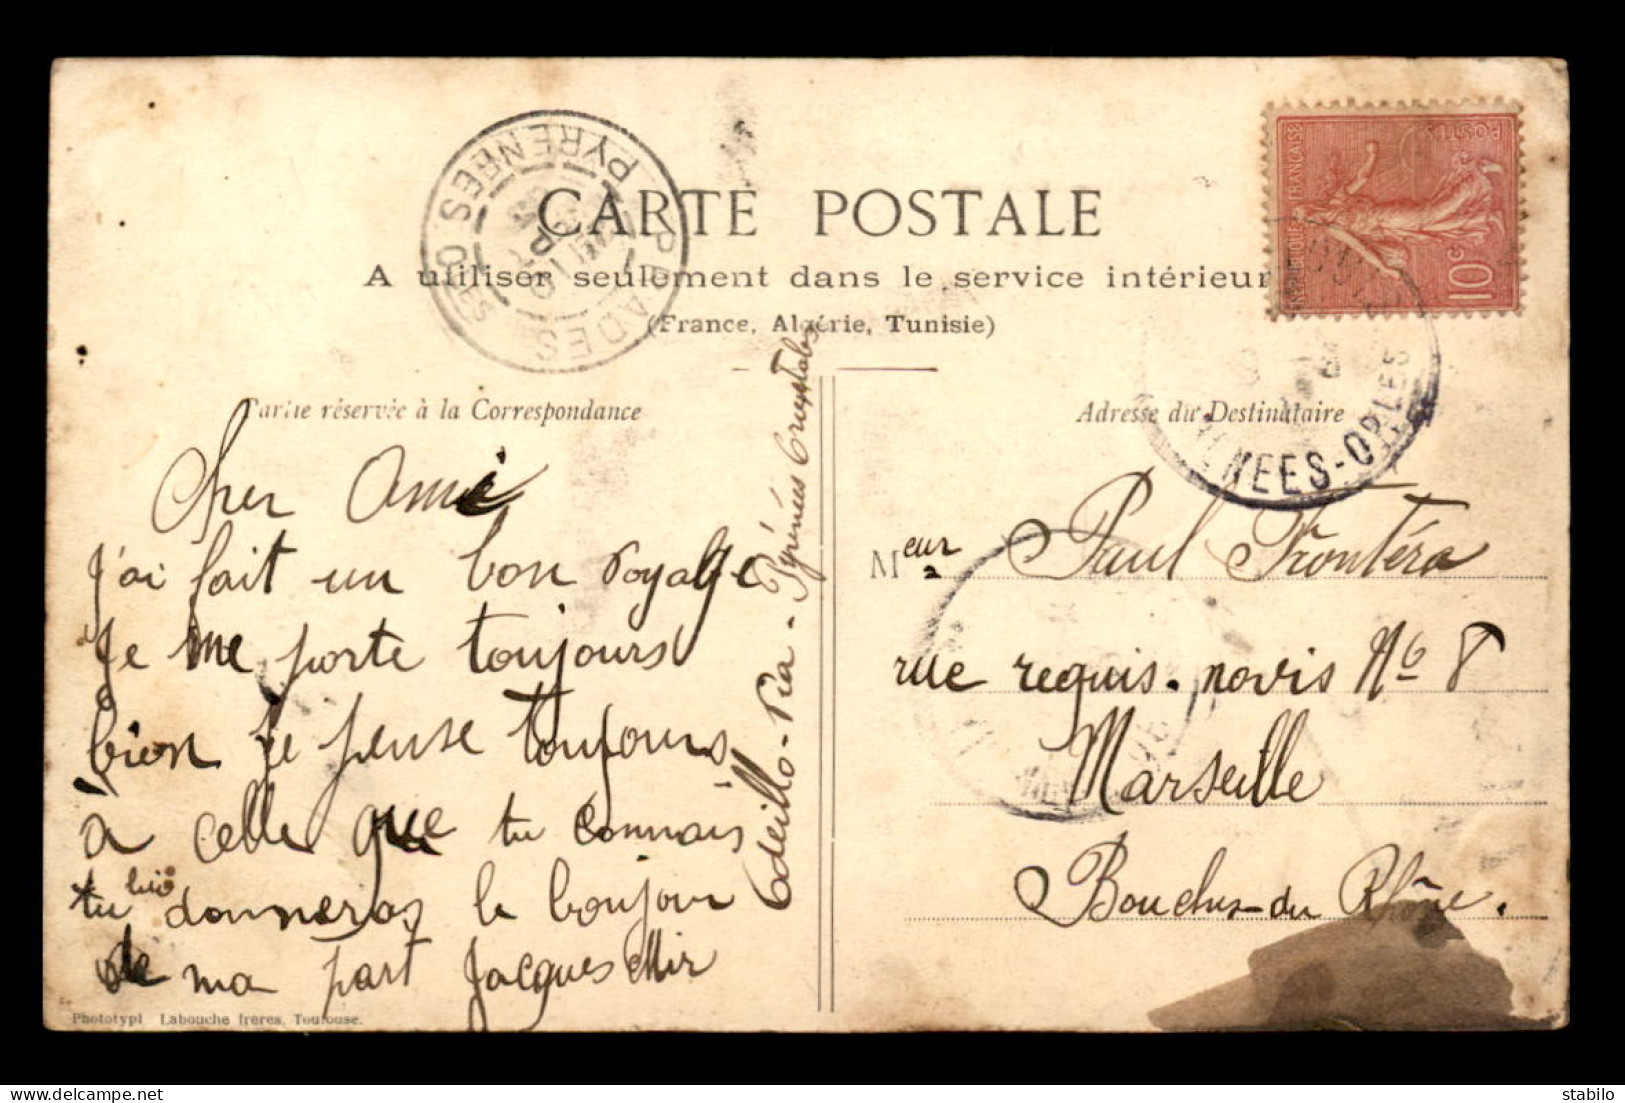 CARTE POSTALE
A utiliser seulement dans le service intérieur
(France, Algérie, Tunisie)
PRADES
PYRENEES. O LES
REPUBLIQUE FRANÇAISE
POSTES
10 c
NEES-O RLES
Partie réservée à la Correspondance
Cher Ami
J'ai fait un bon voyage
Je me porte toujours
bien je pense toujours
à celle que tu connais
tu lui donneras le bonjour
de ma part Jacques Mir
Odeillo-Via - Pyrénées Orientales
Adresse du Destinataire
Meur Paul Frontéra
rue requis. novis No 8
Marseille
Bouches-du Rhône.
Phototypi Labouche frères, Toulouse.
stabilo